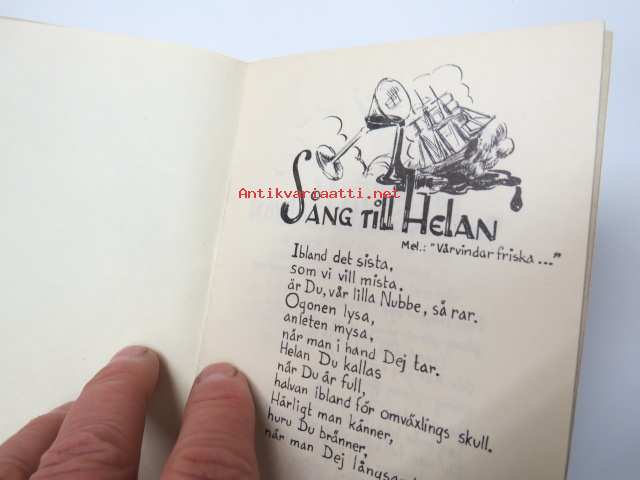 Antikvariaatti.net
SÅNG TILL HELAN
Mel.: "Vårvindar friska ..."
Ibland det sista,
som vi vill mista.
är Du, vår lilla Nubbe, så rar.
Ögonen lysa,
anleten mysa,
når man i hand Dej tar.
Helan Du kallas
når Du är full,
halvan ibland för omväxlings skull.
Härligt man känner,
huru Du bränner,
når man Dej